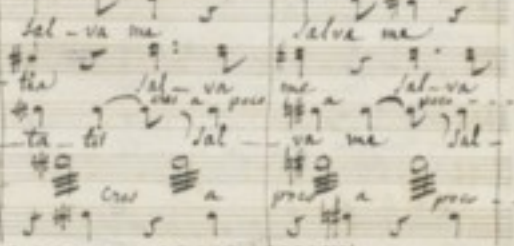 Sal - va me Salva me
tis Sal - va me Sal - va
cres a poco a poco - - -
ta - tis Sal - va me Sal -
Cres a poco a poco - -